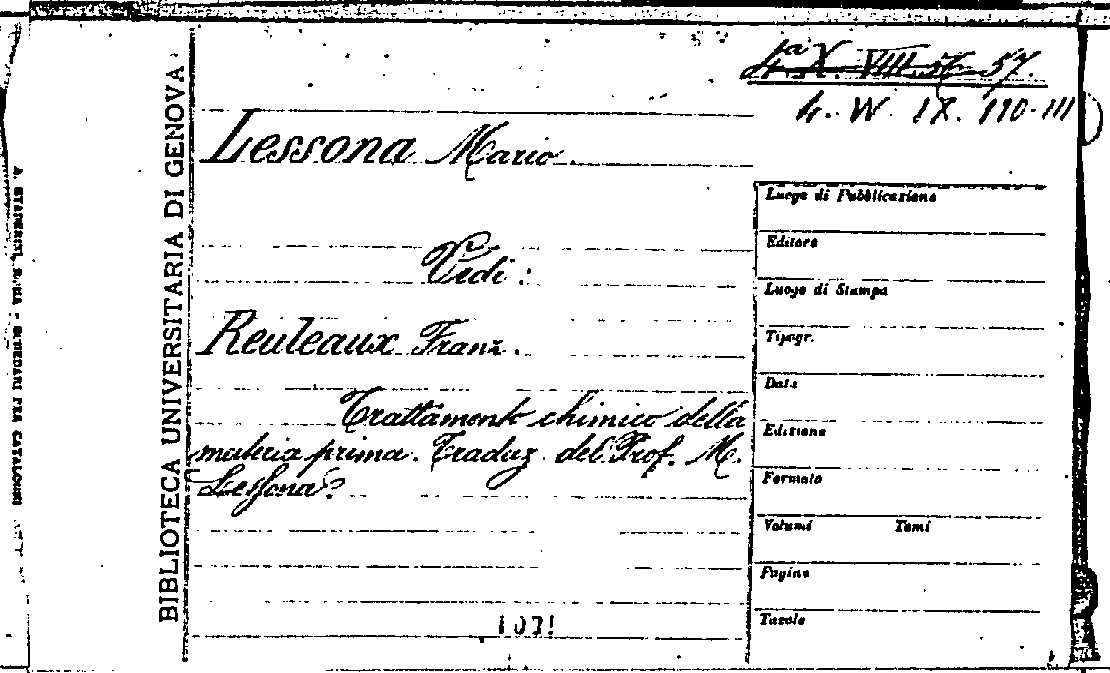 4.ª X. VIII. 56-57.
4. W. IX. 110-111
Lessona Mario.
Vedi:
Reuleaux Franz.
Trattamento chimico della
materia prima. Traduz. del Prof. M.
Lessona.
BIBLIOTECA UNIVERSITARIA DI GENOVA
Luogo di Pubblicazione
Editore
Luogo di Stampa
Tipogr.
Data
Edizione
Formato
Volumi Tomi
Pagine
Tavole
SCHEDARI PER CATALOGHI